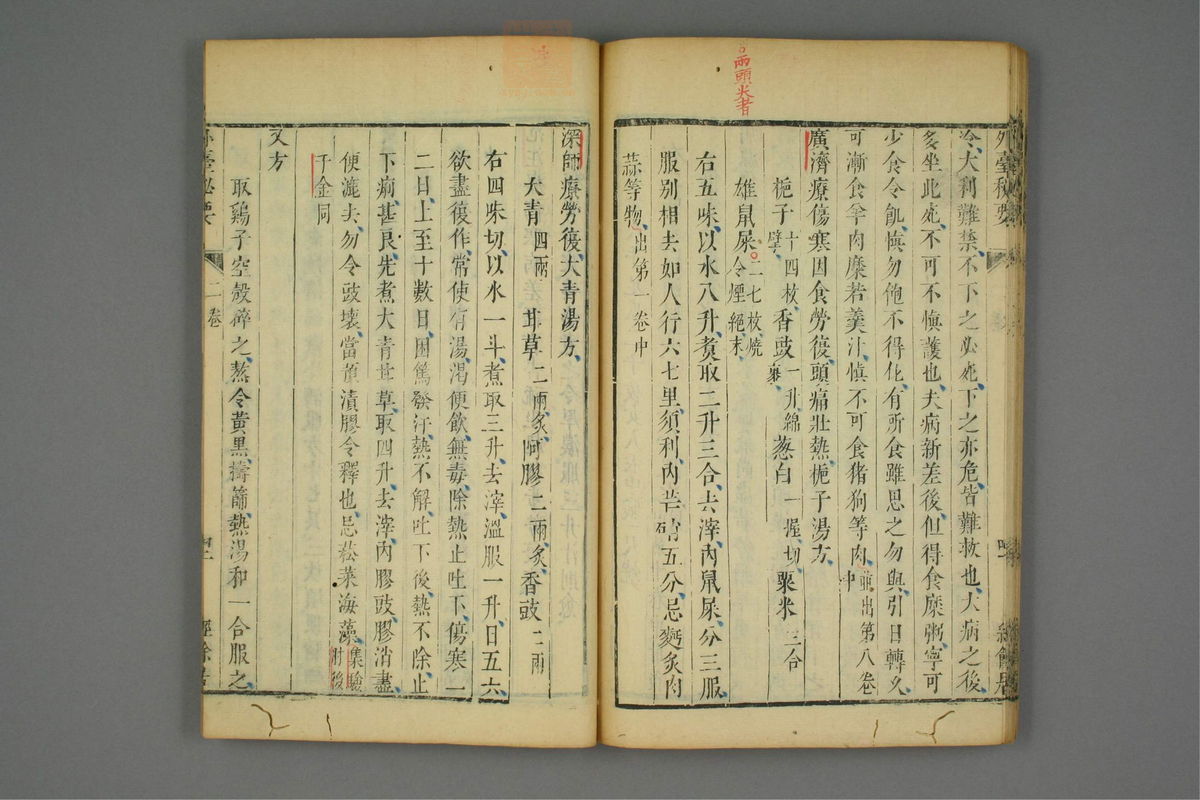 兩頭尖者
外臺秘要
冷大利難禁不下之必死下之亦危皆難救也大病之後
多坐此死不可不愼護也夫病新差後但得食糜粥寧可
少食令飢愼勿飽不得他有所食雖思之勿與引日轉久
可漸食羊肉糜若羹汁愼不可食猪狗等肉並出第八卷中
廣濟療傷寒因食勞復頭痛壯熱梔子湯方
梔子十四枚擘香豉一升綿裹葱白一握切粟米三合
雄鼠屎二七枚燒令煙絕末
右五味以水八升煮取二升三合去滓內鼠屎分三服
服別相去如人行六七里須利內芒硝五分忌麪炙肉
蒜等物出第一卷中
深師療勞復大青湯方
大青四兩甘草二兩炙阿膠二兩炙香豉二兩
右四味切以水一斗煮取三升去滓溫服一升日五六
欲盡復作常使有湯渴便飲無毒除熱止吐下傷寒一
二日上至十數日困篤發汗熱不解吐下後熱不除止
下痢甚良先煮大青甘草取四升去滓內膠豉膠消盡
便漉去勿令豉壞當預漬膠令釋也忌菘菜海藻集驗肘後
千金同
又方
取鷄子空殼碎之熬令黃黑擣篩熱湯和一合服之
二卷